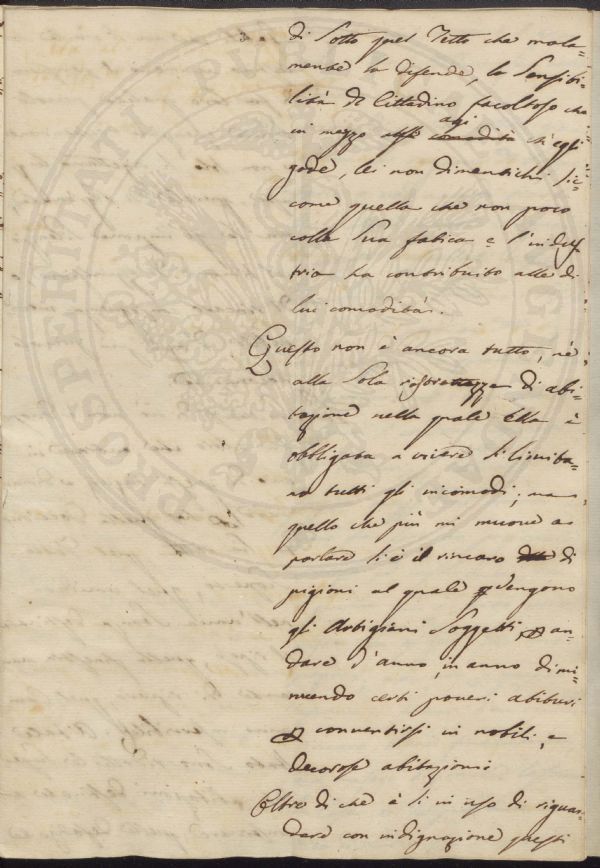 di Sotto quel Tetto che mala-
mente la difende, la Sensibi-
lità di Cittadino facoltoso che
in mezzo agi ch'egli
gode, lei non dimentichi sic-
come quella che non poco
colla Sua fatica e l'indus
tria ha contribuito alle di
lui comodità.
Questo non è ancora tutto, nè
alla Sola ristrettezza di abi-
tazione nella quale Ella è
obbligata a vivere si limita-
no tutti gli incomodi; ma
quello che più mi muove a
parlare si è il rincaro di
pigioni al quale vengono
gli Artigiani Soggetti, an-
dare d'anno, in anno dimi-
nuendo certi poveri abituri
convertirsi in nobili, e
decorose abitazioni
Oltre di che è si in uso di riguar-
dare con indignazione questi
PROSPERITATI PUBLICAE